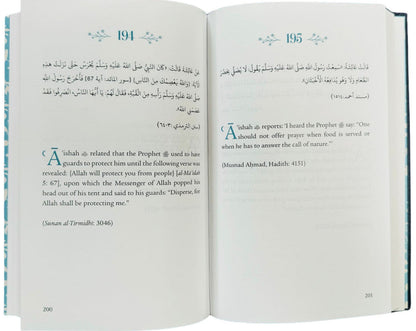 194
عَنْ عَائِشَةَ قَالَتْ: «كَانَ النَّبِيُّ صَلَّى اللَّهُ عَلَيْهِ وَسَلَّمَ يُحْرَسُ حَتَّى نَزَلَتْ هَذِهِ
الآيَةُ: (وَاللَّهُ يَعْصِمُكَ مِنَ النَّاسِ) فَأَخْرَجَ رَسُولُ اللَّهِ
صَلَّى اللَّهُ عَلَيْهِ وَسَلَّمَ رَأْسَهُ مِنَ القُبَّةِ، فَقَالَ لَهُمْ: يَا أَيُّهَا النَّاسُ
اللَّهُ».
ʿĀʾishah related that the Prophet ﷺ used to have
guards to protect him until the following verse was
revealed: [Allah will protect you from people] [al-Māʾidah
5: 67], upon which the Messenger of Allah popped his
head out of his tent and said to his guards: “Disperse, for
Allah shall be protecting me.”
(Sunan al-Tirmidhī: 3046)
200
195
قَالَتْ عَائِشَةُ: سَمِعْتُ رَسُولَ اللَّهِ صَلَّى اللَّهُ عَلَيْهِ وَسَلَّمَ يَقُولُ: لَا يُصَلَّى بِحَضْرَةِ
الطَّعَامِ وَلَا وَهُوَ يُدَافِعُهُ الأَخْبَثَانِ».
ʿĀʾishah reports: “I heard the Prophet ﷺ say: “One
should not offer prayer when food is served or
when he has to answer the call of nature.”
(Musnad Aḥmad, Hadith: 4151)
201